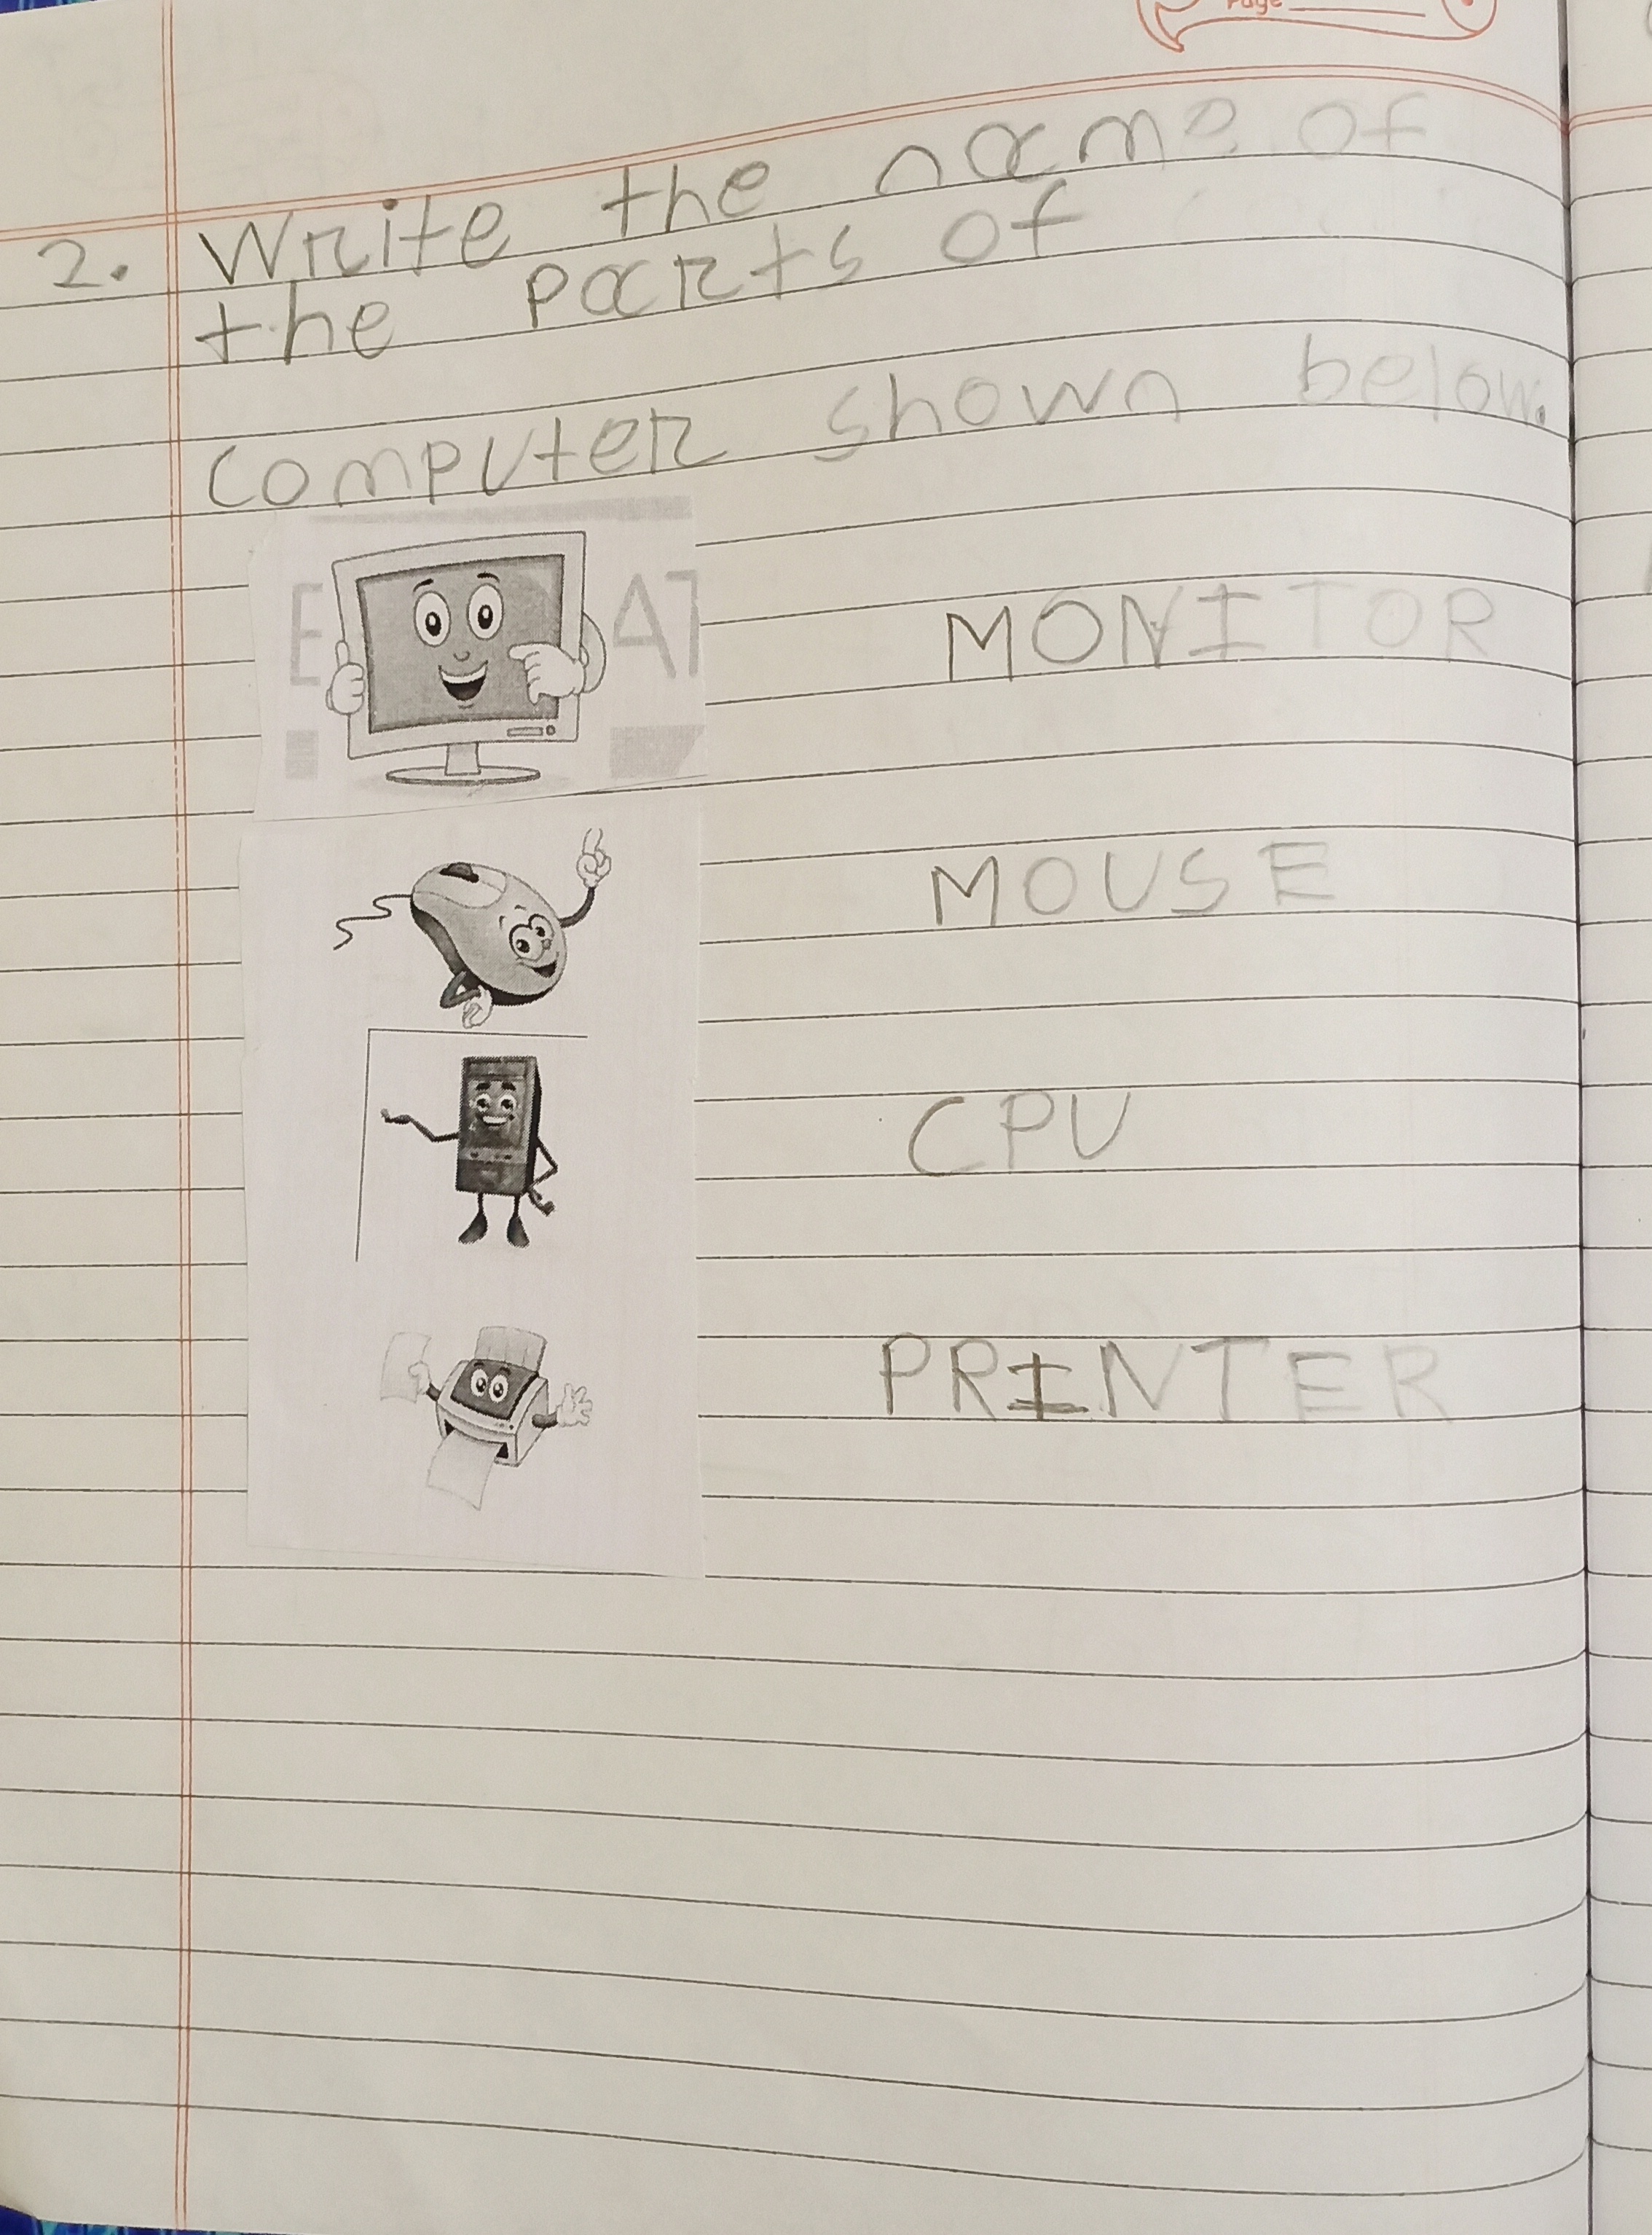 Page
2. Write the name of
the parts of
computer shown below.
MONITOR
MOUSE
CPU
PRINTER